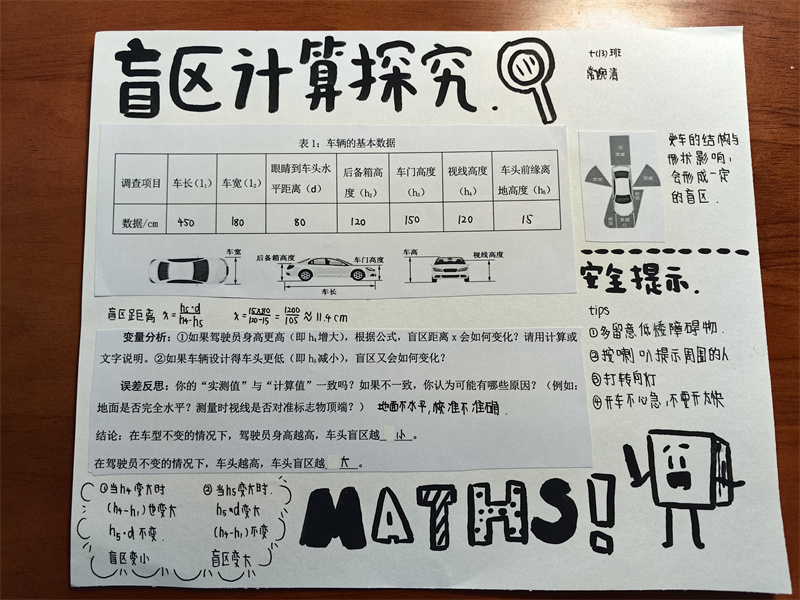 盲区计算探究.
七(13)班
常婉清
表1：车辆的基本数据
调查项目 车长（l₁） 车宽（l₂） 眼睛到车头水平距离（d） 后备箱高度（h₂） 车门高度（h₃） 视线高度（h₄） 车头前缘离地高度（h₅）
数据/cm 450 180 80 120 150 120 15
车宽
后备箱高度
车门高度
车长
车高
视线高度
受车的结构与
形状影响，
会形成一定
的盲区.
盲区距离 x=h₅·d/h₄-h₅ x=15×80/120-15=1200/105≈11.4cm
变量分析：①如果驾驶员身高更高（即h₄增大），根据公式，盲区距离x会如何变化？请用计算或
文字说明。②如果车辆设计得车头更低（即h₅减小），盲区又会如何变化？
误差反思：你的“实测值”与“计算值”一致吗？如果不一致，你认为可能有哪些原因？（例如：
地面是否完全水平？测量时视线是否对准标志物顶端？） 地面不水平，校准不准确.
结论：在车型不变的情况下，驾驶员身高越高，车头盲区越 小 。
在驾驶员不变的情况下，车头越高，车头盲区越 大 。
①当h4变大时
(h4-h1)也变大
h5·d不变.
盲区变小
②当h5变大时.
h5·d变大
(h4-h1)不变
盲区变大
安全提示.
tips
①多留意低矮障碍物.
②按喇叭提示周围的人
③打转向灯
④开车不心急，不要开太快
MATHS!